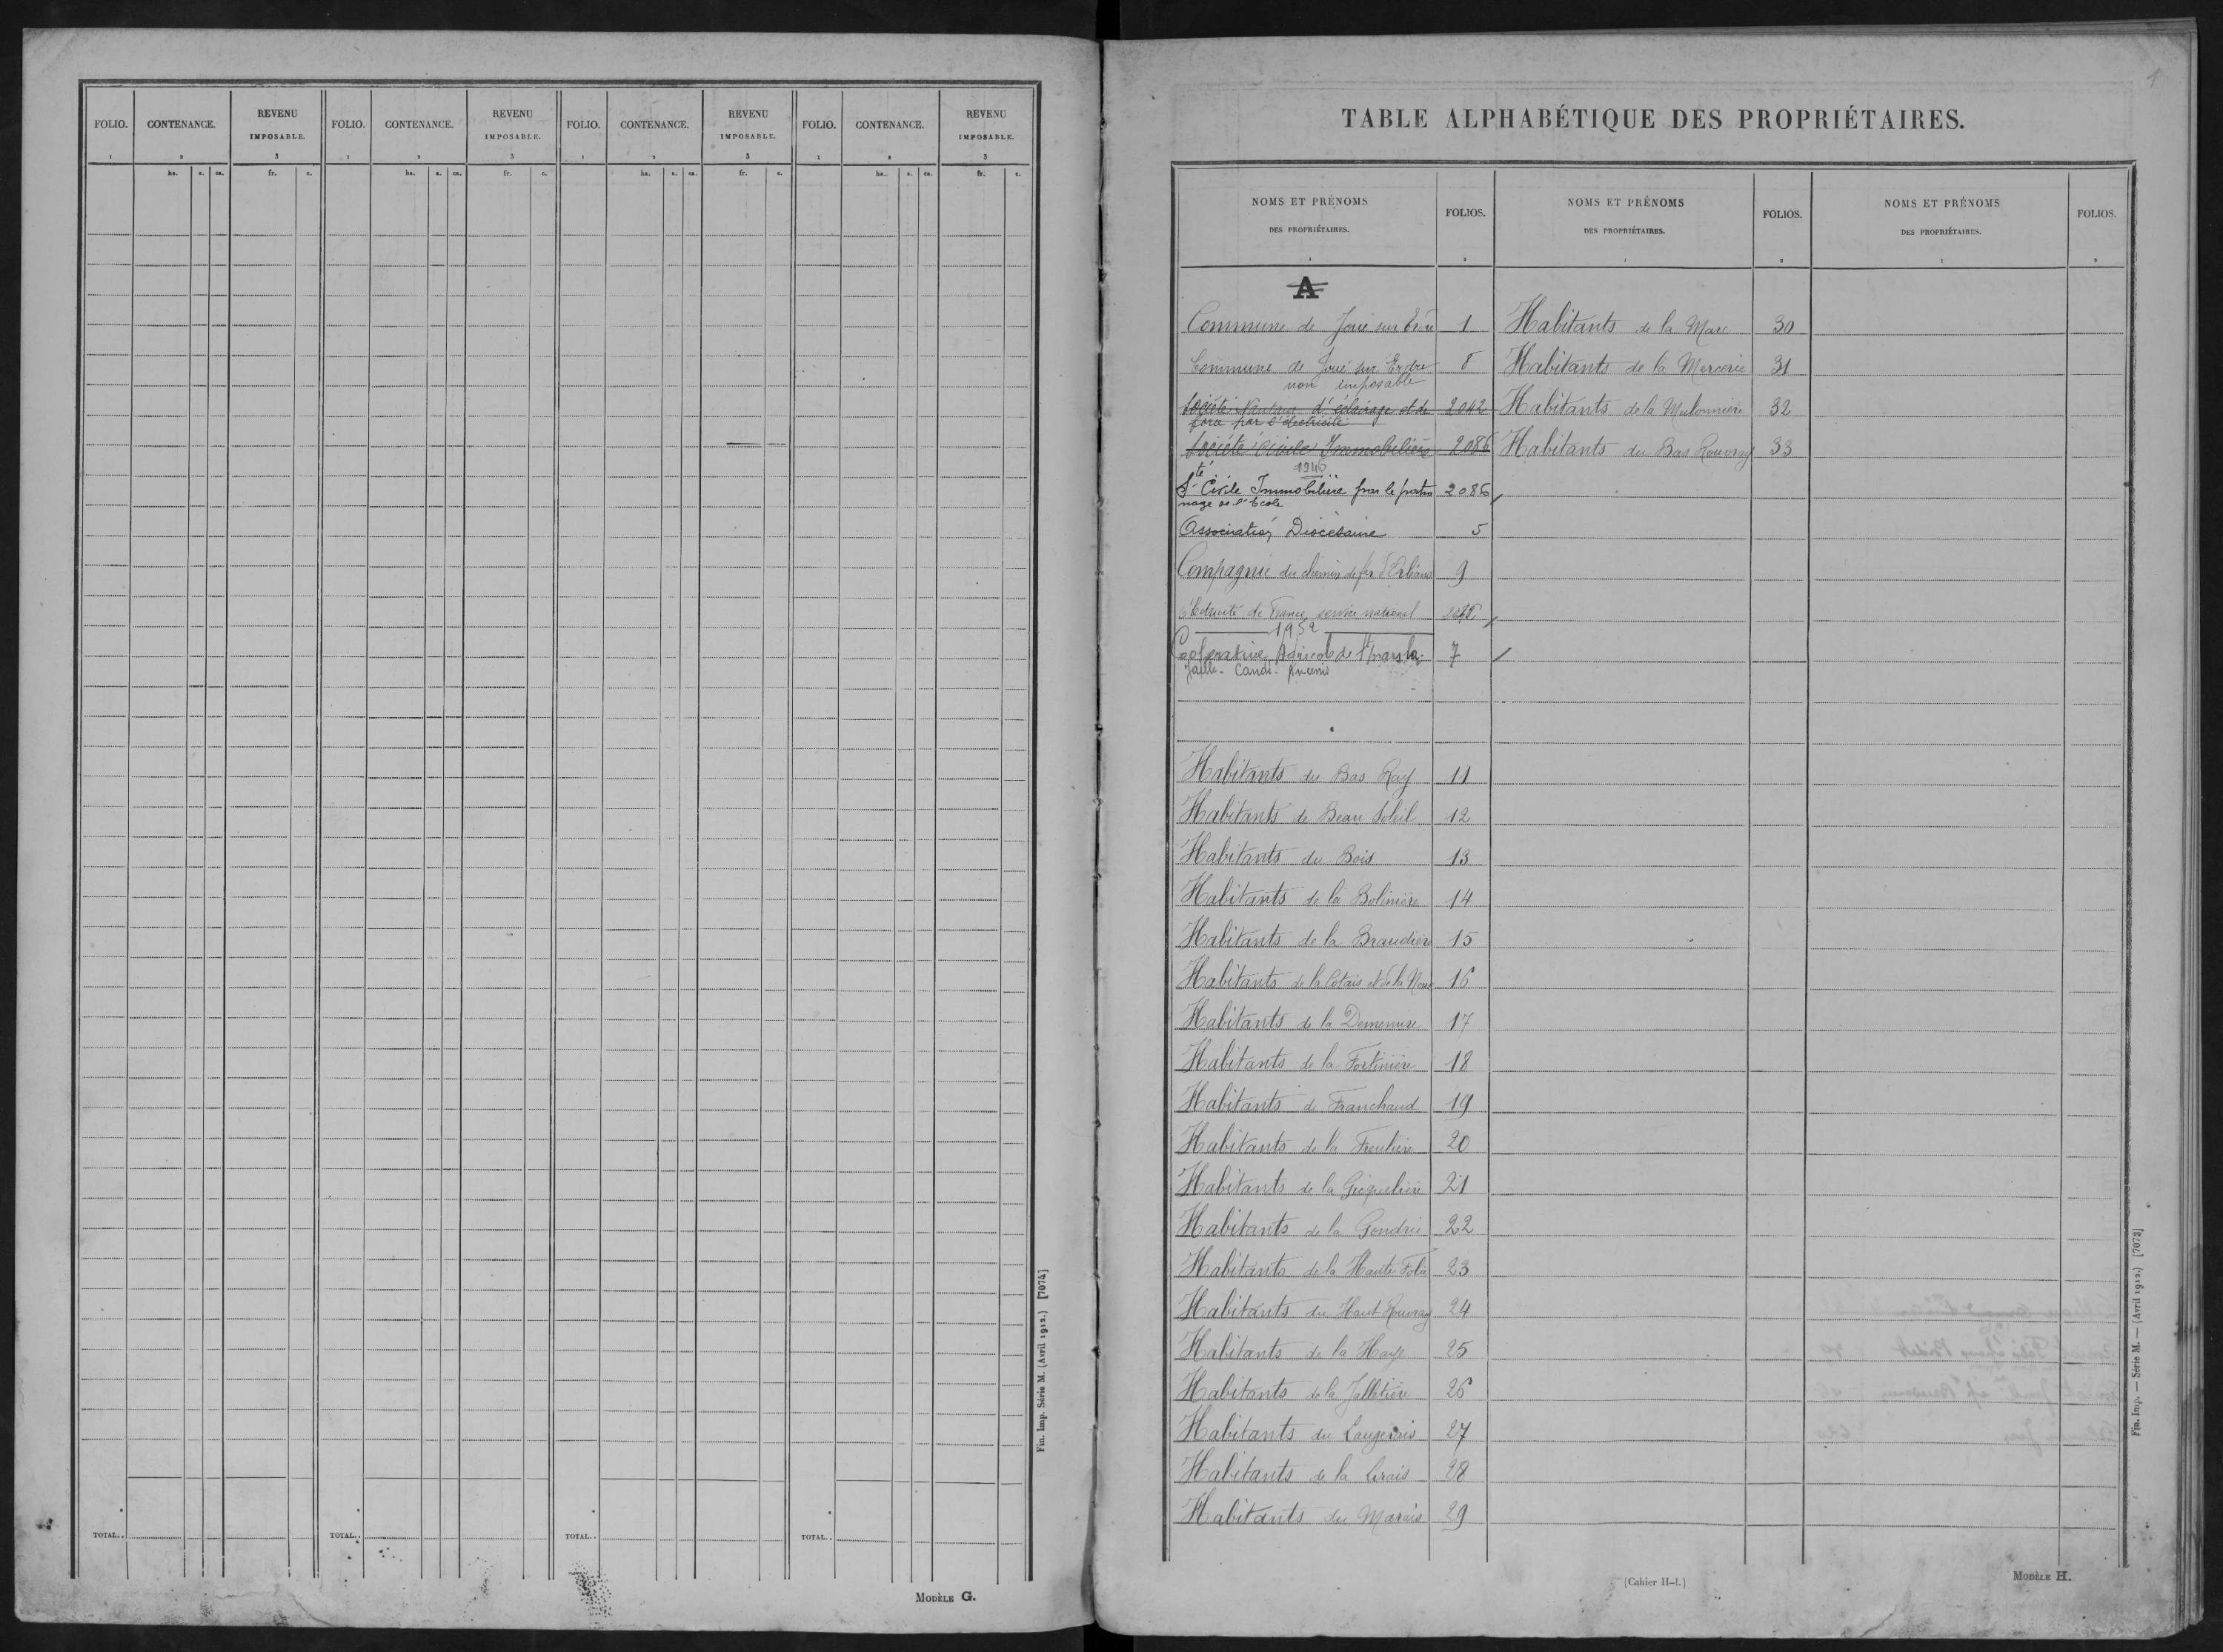 FOLIO. CONTENANCE. REVENU IMPOSABLE. FOLIO. CONTENANCE. REVENU IMPOSABLE. FOLIO. CONTENANCE. REVENU IMPOSABLE. FOLIO. CONTENANCE. REVENU IMPOSABLE.
1 2 3 1 2 3 1 2 3 1 2 3
ha. a. ca. fr. c. ha. a. ca. fr. c. ha. a. ca. fr. c. ha. a. ca. fr. c.
TOTAL.. TOTAL.. TOTAL.. TOTAL..
Fin. Imp. Série M. (Avril 1912.) [7074]
MODÈLE G.
1
TABLE ALPHABÉTIQUE DES PROPRIÉTAIRES.
NOMS ET PRÉNOMS DES PROPRIÉTAIRES. FOLIOS. NOMS ET PRÉNOMS DES PROPRIÉTAIRES. FOLIOS. NOMS ET PRÉNOMS DES PROPRIÉTAIRES. FOLIOS.
1 2 1 2 1 2
A
Commune de Joué sur Erdre 1
Commune de Joué sur Erdre 8
non imposable
Société Nantaise d'éclairage et de 2042
force par l'électricité
Société Civile Immobilière 2086
1940
Sté Civile Immobilière par le patro 2086
nage de l'Ecole
Association Diocésaine 5
Compagnie du chemin de fer d'Orléans 9
Electricité de France service national
1952
Coopérative Agricole de St Mars la 7
Jaille - Candé - Ancenis
Habitants du Bas Ray 11
Habitants de Beau Soleil 12
Habitants du Bois 13
Habitants de la Bolinière 14
Habitants de la Braudière 15
Habitants de la Cotais et de la Noue 16
Habitants de la Demenure 17
Habitants de la Fortinière 18
Habitants de Franchaud 19
Habitants de la Freulière 20
Habitants de la Gicquelière 21
Habitants de la Gondrie 22
Habitants de la Haute Folie 23
Habitants du Haut Rouvray 24
Habitants de la Haye 25
Habitants de la Jalletière 26
Habitants du Laugerais 27
Habitants de la Lirais 28
Habitants du Marais 29
Habitants de la Mare 30
Habitants de la Mercerie 31
Habitants de la Mulonnière 32
Habitants du Bas Rouvray 33
(Cahier H-1.)
MODÈLE H.
Fin. Imp. — Série M. — (Avril 1912.) [7072]